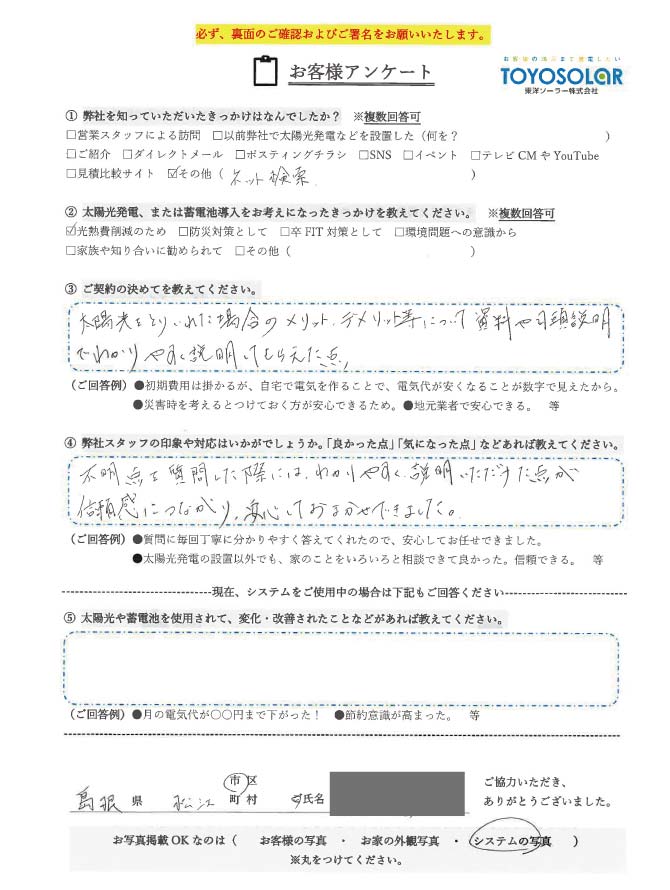 必ず、裏面のご確認およびご署名をお願いいたします。
お客様アンケート
お客様の満足まで発電したい
TOYOSOLAR
東洋ソーラー株式会社
① 弊社を知っていただいたきっかけはなんでしたか？ ※複数回答可
□営業スタッフによる訪問 □以前弊社で太陽光発電などを設置した（何を？ ）
□ご紹介 □ダイレクトメール □ポスティングチラシ □SNS □イベント □テレビ CM や YouTube
□見積比較サイト ☑その他（ ネット検索 ）
② 太陽光発電、または蓄電池導入をお考えになったきっかけを教えてください。 ※複数回答可
☑光熱費削減のため □防災対策として □卒 FIT 対策として □環境問題への意識から
□家族や知り合いに勧められて □その他（ ）
③ ご契約の決めてを教えてください。
太陽光をとりいれた場合のメリット、デメリット等について資料や口頭説明
でわかりやすく説明してもらえた点
（ご回答例）●初期費用は掛かるが、自宅で電気を作ることで、電気代が安くなることが数字で見えたから。
●災害時を考えるとつけておく方が安心できるため。●地元業者で安心できる。 等
④ 弊社スタッフの印象や対応はいかがでしょうか。「良かった点」「気になった点」などあれば教えてください。
不明点を質問した際には、わかりやすく説明いただけた点が
信頼感につながり、安心しておまかせできました。
（ご回答例）●質問に毎回丁寧に分かりやすく答えてくれたので、安心してお任せできました。
●太陽光発電の設置以外でも、家のことをいろいろと相談できて良かった。信頼できる。 等
現在、システムをご使用中の場合は下記もご回答ください
⑤ 太陽光や蓄電池を使用されて、変化・改善されたことなどがあれば教えてください。
（ご回答例）●月の電気代が〇〇円まで下がった！ ●節約意識が高まった。 等
島根 県 松江 市区町村 氏名
ご協力いただき、
ありがとうございました。
お写真掲載 OK なのは（ お客様の写真 ・ お家の外観写真 ・ システムの写真 ）
※丸をつけてください。